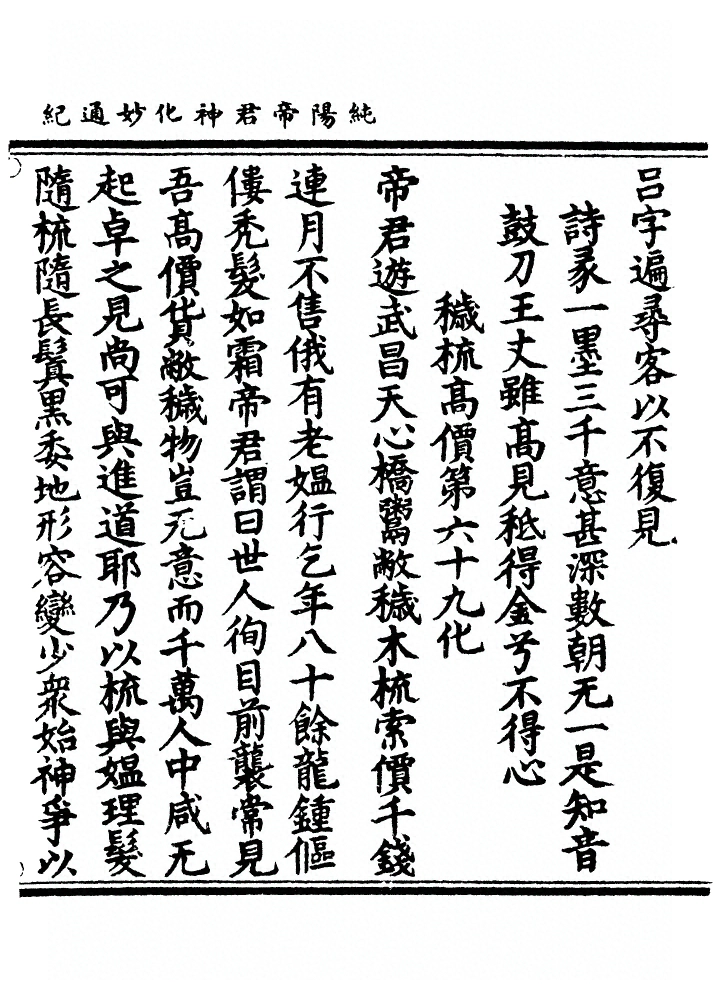 純陽帝君神化妙通紀
吕字遍尋客以不復見
詩彖一墨三千意甚深數朝无一是知音
鼓刀王丈雖高見秪得金兮不得心
穢梳高價第六十九化
帝君遊武昌天心橋鬻敝穢木梳索價千錢
連月不售俄有老媼行乞年八十餘龍鍾傴
僂禿髮如霜帝君謂曰世人徇目前襲常見
吾高價貨敝穢物豈无意而千萬人中咸无
起卓之見尚可與進道耶乃以梳與媼理髮
隨梳隨長鬒黑委地形容變少衆始神爭以